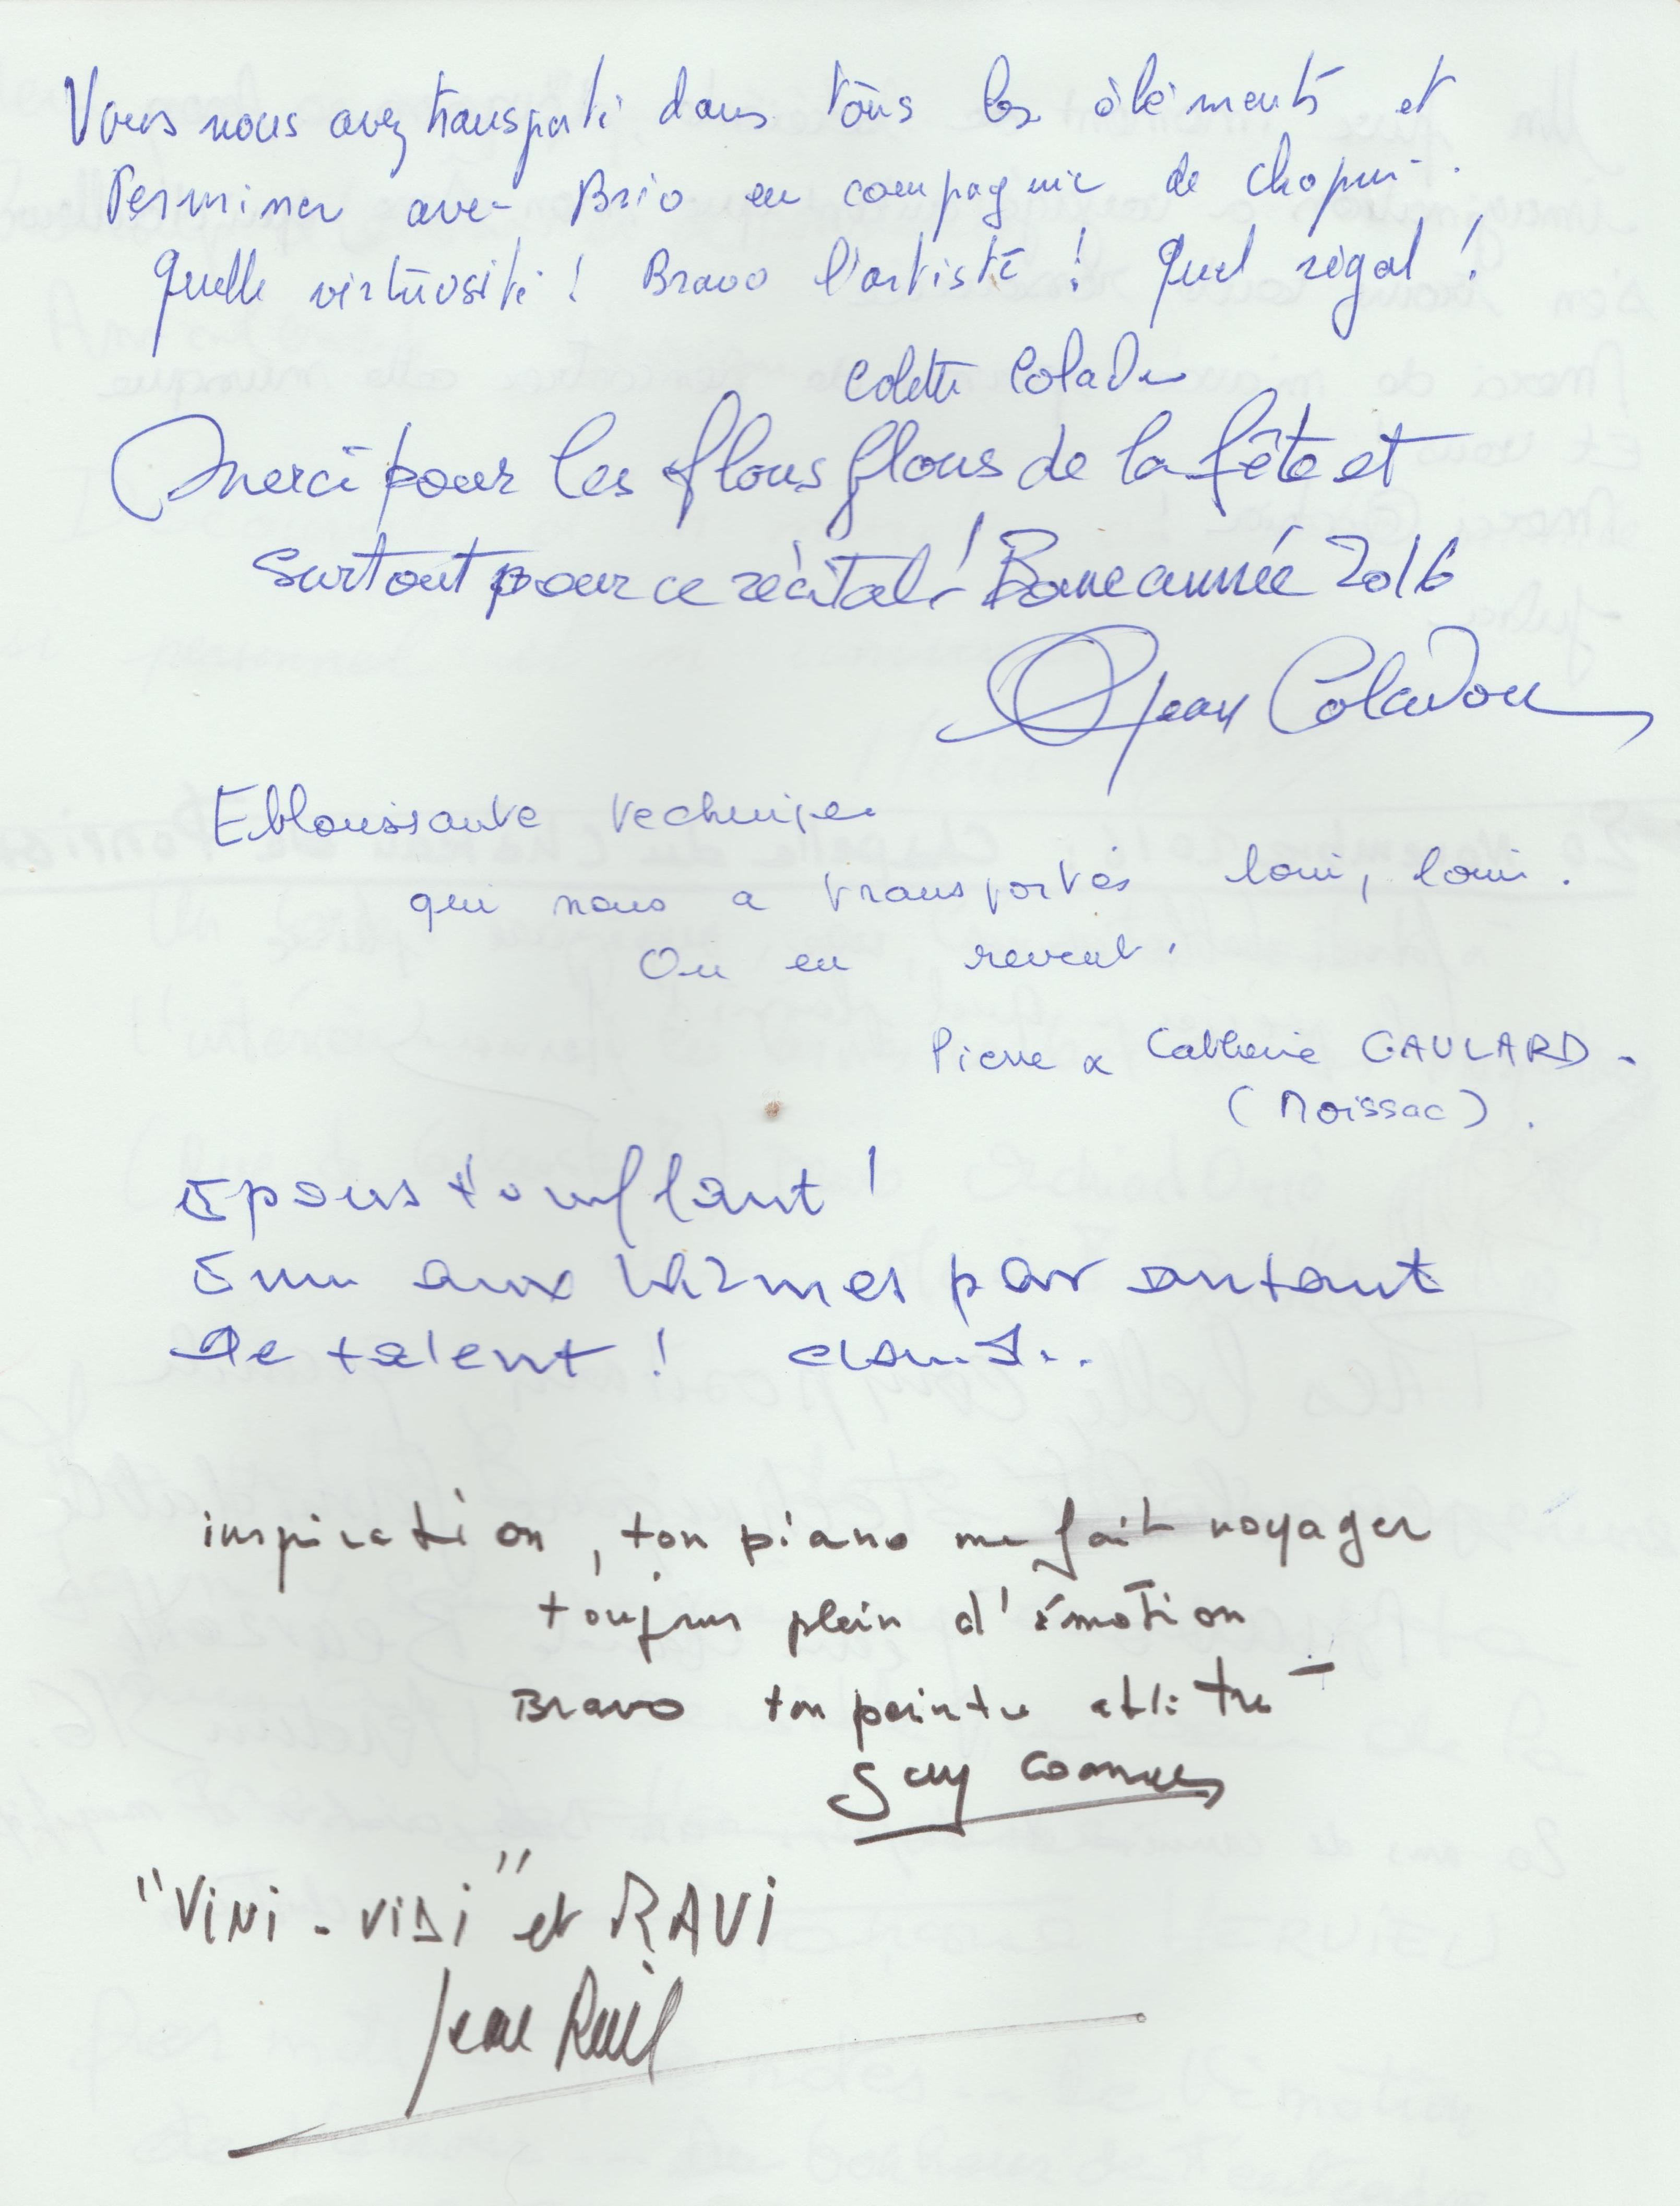 Vous nous avez transporté dans tous les éléments et
Terminer avec Brio en compagnie de chopin.
Quelle virtuosité ! Bravo l'artiste ! Quel régal !
Colette
Merci pour les flons flons de la fête et
surtout pour ce récital ! Bonne année 2016
Jean Coladou
Eblouissante technique
qui nous a transportés loin, loin.
On en revient.
Pierre & Catherine GAULARD -
(Moissac).
Epoustouflant !
Emu aux larmes par autant
de talent !
inspiration, ton piano me fait voyager
toujours plein d'émotion
Bravo ton peintre attitré
Guy
"VINI - VIDI" et RAVI
Jean